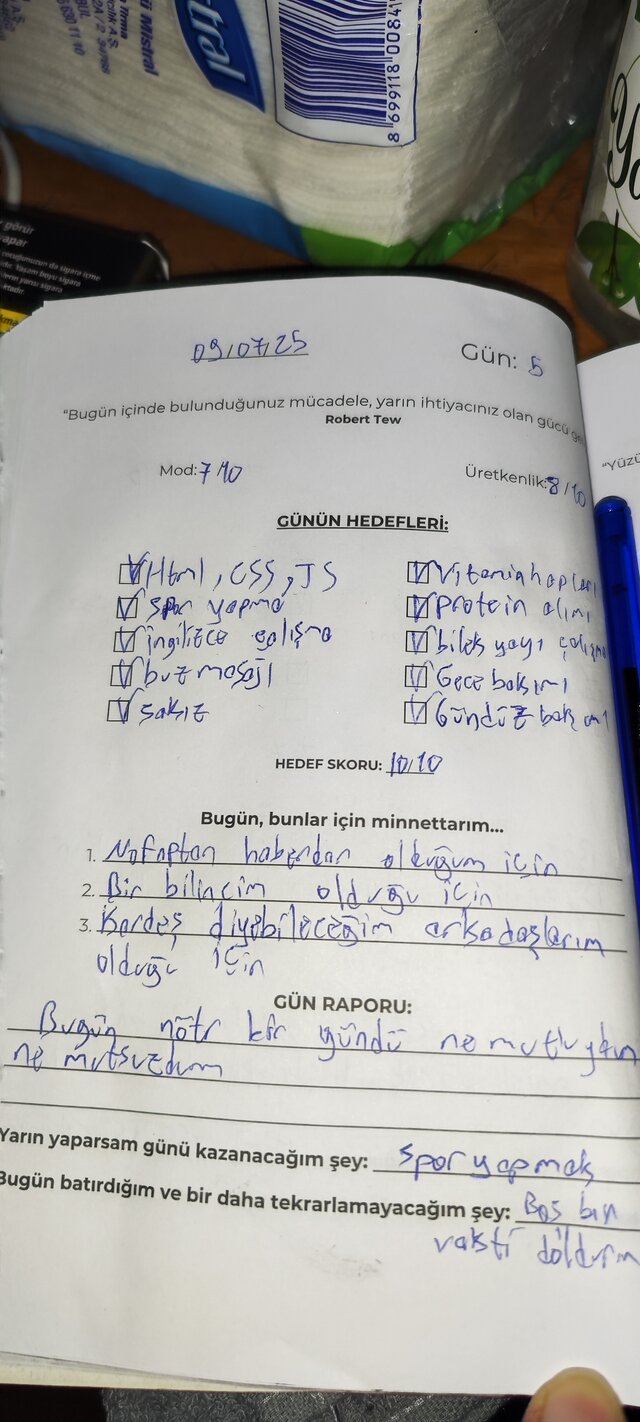 tral
8 699118 0084
görür
apar
09/07/25
Gün: 5
"Bugün içinde bulunduğunuz mücadele, yarın ihtiyacınız olan gücü
Robert Tew
Mod: 7/10
Üretkenlik: 8/10
GÜNÜN HEDEFLERİ:
Html, CSS, JS
Vitamin hapları
Spor yapma
Protein alımı
ingilizce çalışma
bilek yayı çalışma
buz masajı
Gece bakımı
sakız
Gündüz bakımı
HEDEF SKORU: 10/10
Bugün, bunlar için minnettarım...
1. Nofaptan haberdar olduğum için
2. Bir bilincim olduğu için
3. Kardeş diyebileceğim arkadaşlarım
olduğu için
GÜN RAPORU:
Bugün nötr bir gündü ne mutluydum
ne mutsuzdum
Yarın yaparsam günü kazanacağım şey: Spor yapmak
Bugün batırdığım ve bir daha tekrarlamayacağım şey: Boş bir
vakti doldurm
"Yüzü